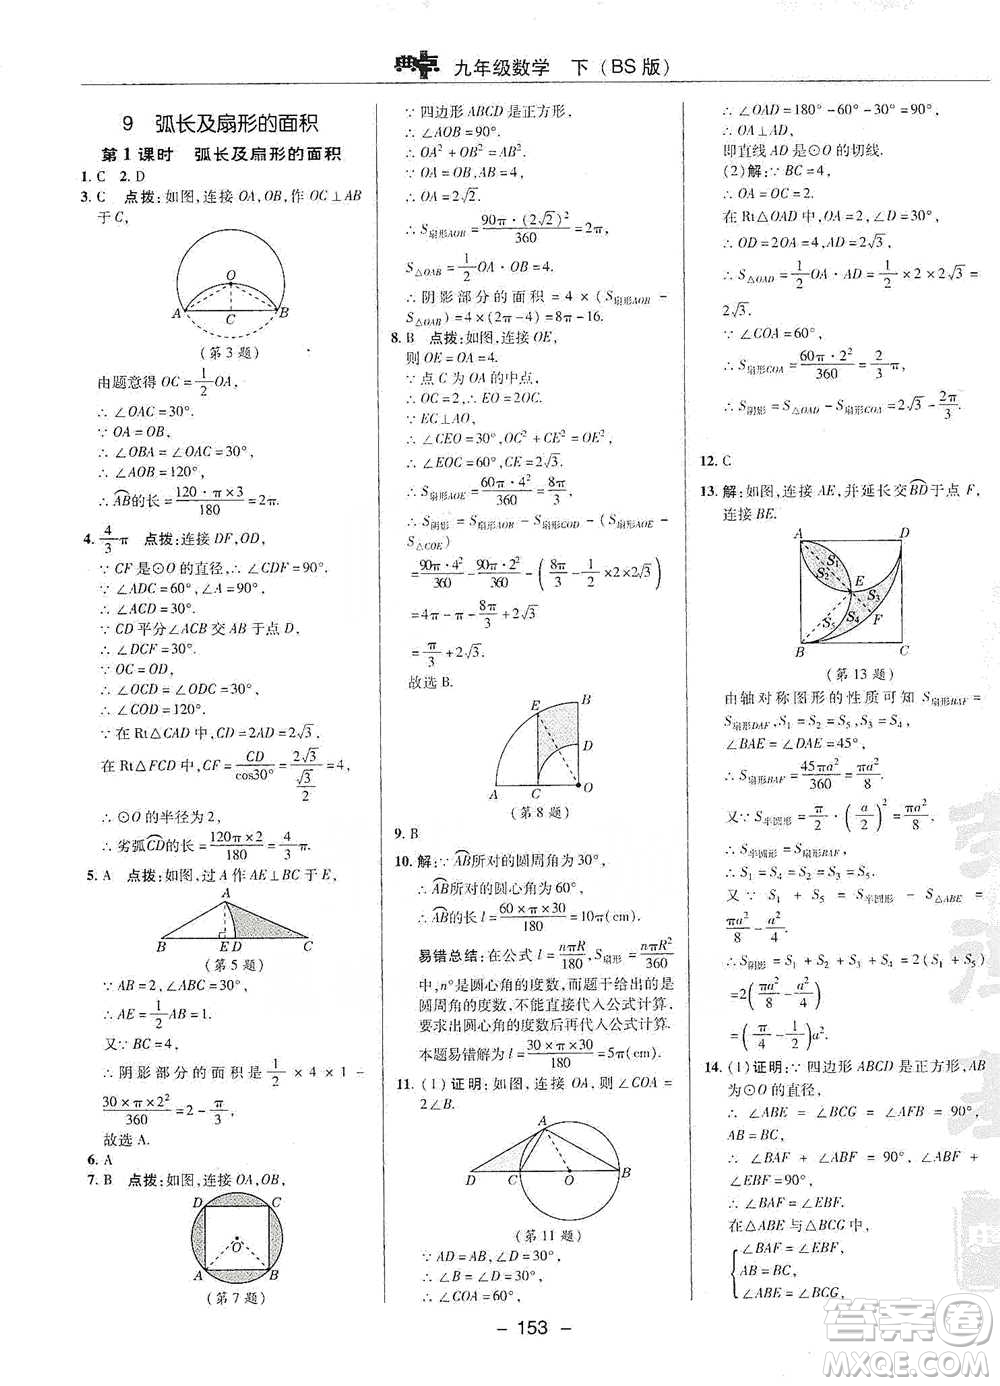 典点 九年级数学 下(BS版)
9 弧长及扇形的面积
第1课时 弧长及扇形的面积
1. C 2. D
3. C 点拨:如图,连接OA,OB,作OC⊥AB
于C,
O
A
C
B
(第3题)
由题意得OC=1/2OA,
∴∠OAC=30°.
∵OA=OB,
∴∠OBA=∠OAC=30°.
∴∠AOB=120°.
∴⌒AB的长=120·π×3/180=2π.
4. 4/3π 点拨:连接DF,OD,
∵CF是⊙O的直径,∴∠CDF=90°.
∵∠ADC=60°,∠A=90°,
∴∠ACD=30°.
∵CD平分∠ACB交AB于点D,
∴∠DCF=30°.
∵OC=OD,
∴∠OCD=∠ODC=30°.
∴∠COD=120°.
∵在Rt△CAD中,CD=2AD=2√3,
在Rt△FCD中,CF=CD/cos30°=2√3/(√3/2)=4,
∴⊙O的半径为2.
∴劣弧⌒CD的长=120π×2/180=4/3π.
5. A 点拨:如图,过A作AE⊥BC于E,
A
B
E D
C
(第5题)
∵AB=2,∠ABC=30°,
∴AE=1/2AB=1.
又∵BC=4,
∴阴影部分的面积是1/2×4×1-
30×π×1²/360=2-π/3.
故选A.
6. A
7. B 点拨:如图,连接OA,OB,
D
C
O
A
B
(第7题)
∵四边形ABCD是正方形,
∴∠AOB=90°.
∴OA²+OB²=AB².
∴OA=2√2.
∴S扇形AOB=90π·(2√2)²/360=2π,
S△OAB=1/2OA·OB=4.
∴阴影部分的面积=4×(S扇形AOB-
S△OAB)=4×(2π-4)=8π-16.
8. B 点拨:如图,连接OE,
则OE=OA=4.
∵点C为OA的中点,
∴OC=2,∴EO=2OC.
∵EC⊥AO,
∴∠CEO=30°,OC²+CE²=OE²,
∴∠EOC=60°,CE=2√3.
∴S扇形AOE=60π·4²/360=8π/3.
∴S阴影=S扇形AOB-S扇形COD-(S扇形AOE-
S△COE)
=90π·4²/360-90π·2²/360-(8π/3-1/2×2×2√3)
=4π-π-8π/3+2√3
=π/3+2√3.
故选B.
B
E
D
A
C
O
(第8题)
9. B
10. 解:∵⌒AB所对的圆周角为30°,
∴⌒AB所对的圆心角为60°,
∴⌒AB的长l=60×π×30/180=10π(cm).
易错总结:在公式l=nπR/180,S扇形=nπR²/360
中,n°是圆心角的度数,而题干给出的是
圆周角的度数,不能直接代入公式计算,
要求出圆心角的度数后再代入公式计算.
本题易错解为l=30×π×30/180=5π(cm).
11. (1)证明:如图,连接OA,则∠COA=
2∠B.
A
D
C
O
B
(第11题)
∵AD=AB,∠D=30°,
∴∠B=∠D=30°.
∴∠COA=60°,
∴∠OAD=180°-60°-30°=90°.
∴OA⊥AD,
即直线AD是⊙O的切线.
(2)解:∵BC=4,
∴OA=OC=2.
在Rt△OAD中,OA=2,∠D=30°,
∴OD=2OA=4,AD=2√3,
∴S△OAD=1/2OA·AD=1/2×2×2√3=
2√3.
∵∠COA=60°,
∴S扇形COA=60π·2²/360=2/3π,
∴S阴影=S△OAD-S扇形COA=2√3-2π/3.
12. C
13. 解:如图,连接AE,并延长交⌒BD于点F,
连接BE.
A
D
S1
S2
E
S3
S4
S5
F
B
C
(第13题)
由轴对称图形的性质可知S扇形BAF=
S扇形DAF,S1=S2=S5,S3=S4,
∠BAE=∠DAE=45°,
∴S扇形BAF=45πa²/360=πa²/8.
又∵S半圆形=π/2·(a/2)²=πa²/8,
∴S半圆形=S扇形BAF.
∴S5=S4.
又∵S1+S5=S半圆形-S△ABE=
πa²/8-a²/4,
∴S阴影=S1+S2+S3=2(S1+S5)
=2(πa²/8-a²/4)
=(π/4-1/2)a².
14. (1)证明:∵四边形ABCD是正方形,AB
为⊙O的直径,
∴∠ABE=∠BCG=∠AFB=90°,
AB=BC,
∴∠BAF+∠ABF=90°,∠ABF+
∠EBF=90°,
∴∠BAF=∠EBF.
在△ABE与△BCG中,
∠BAF=∠EBF,
AB=BC,
∠ABE=∠BCG,
- 153 -
答案圈
MXQE.COM